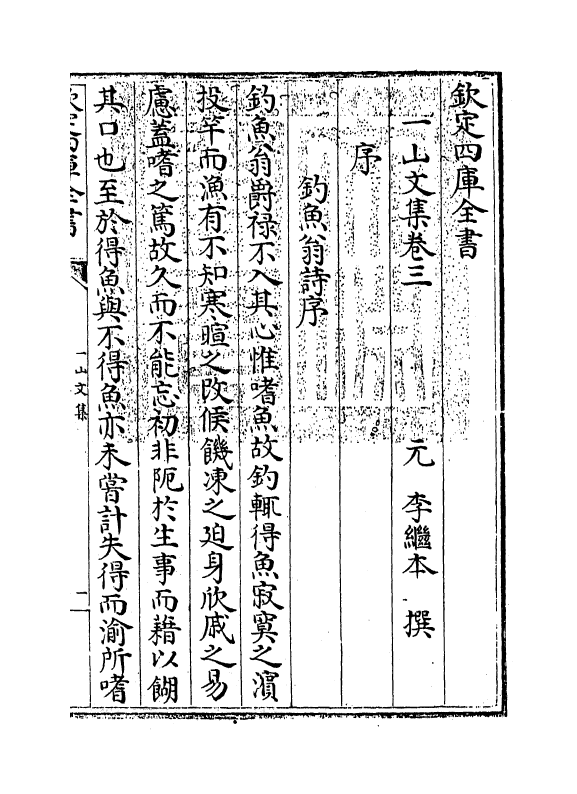 欽定四庫全書
一山文集卷三
元 李繼本 撰
序
釣魚翁詩序
釣魚翁爵祿不入其心惟嗜魚故釣輒得魚寂寞之濵
投竿而漁有不知寒暄之改候饑凍之迫身欣戚之易
慮蓋嗜之篤故久而不能忘初非阨於生事而藉以餬
其口也至於得魚與不得魚亦未嘗計失得而渝所嗜
欽定四庫全書
一山文集